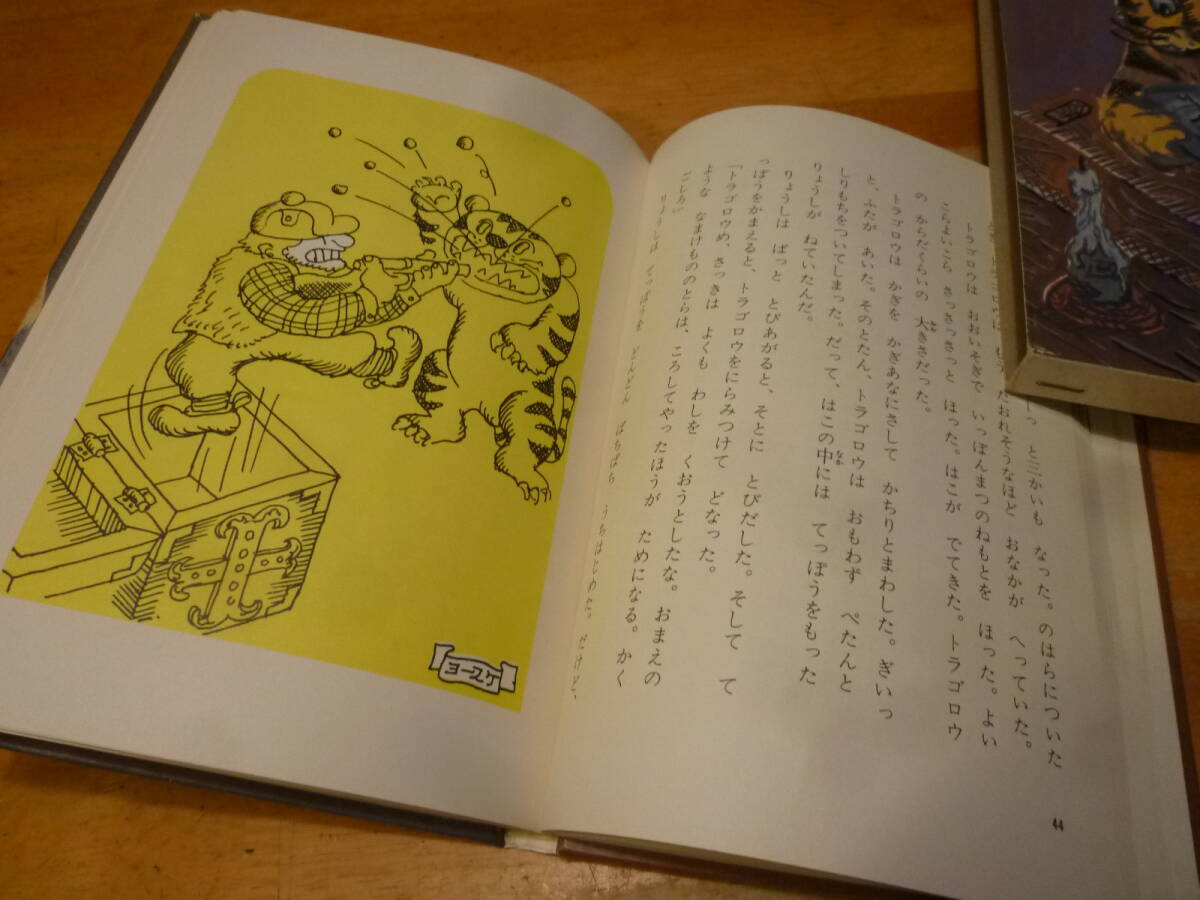 と三かいも なった。のはらについた
トラゴロウは おおいそぎで いっぽんまつのねもとを ほった。よい
こらよいこら さっさっさっと ほった。はこが でてきた。トラゴロウ
の からだくらいの 大きさだった。
トラゴロウは かぎを かぎあなにさして かちりとまわした。ぎいっ
と、ふたが あいた。そのとたん、トラゴロウは おもわず ぺたんと
しりもちをついてしまった。だって、はこの中には てっぽうをもった
りょうしが ねていたんだ。
りょうしは ぱっと とびあがると、そとに とびだした。そして て
っぽうをかまえると、トラゴロウをにらみつけて どなった。
「トラゴロウめ、さっきは よくも わしを くおうとしたな。おまえの
ような なまけもののとらは、ころしてやったほうが ためになる。かく
ごしろ」
りょうしは てっぽうを どんどん ぱちぱち うちはじめた。だけど、
44
ヨースケ